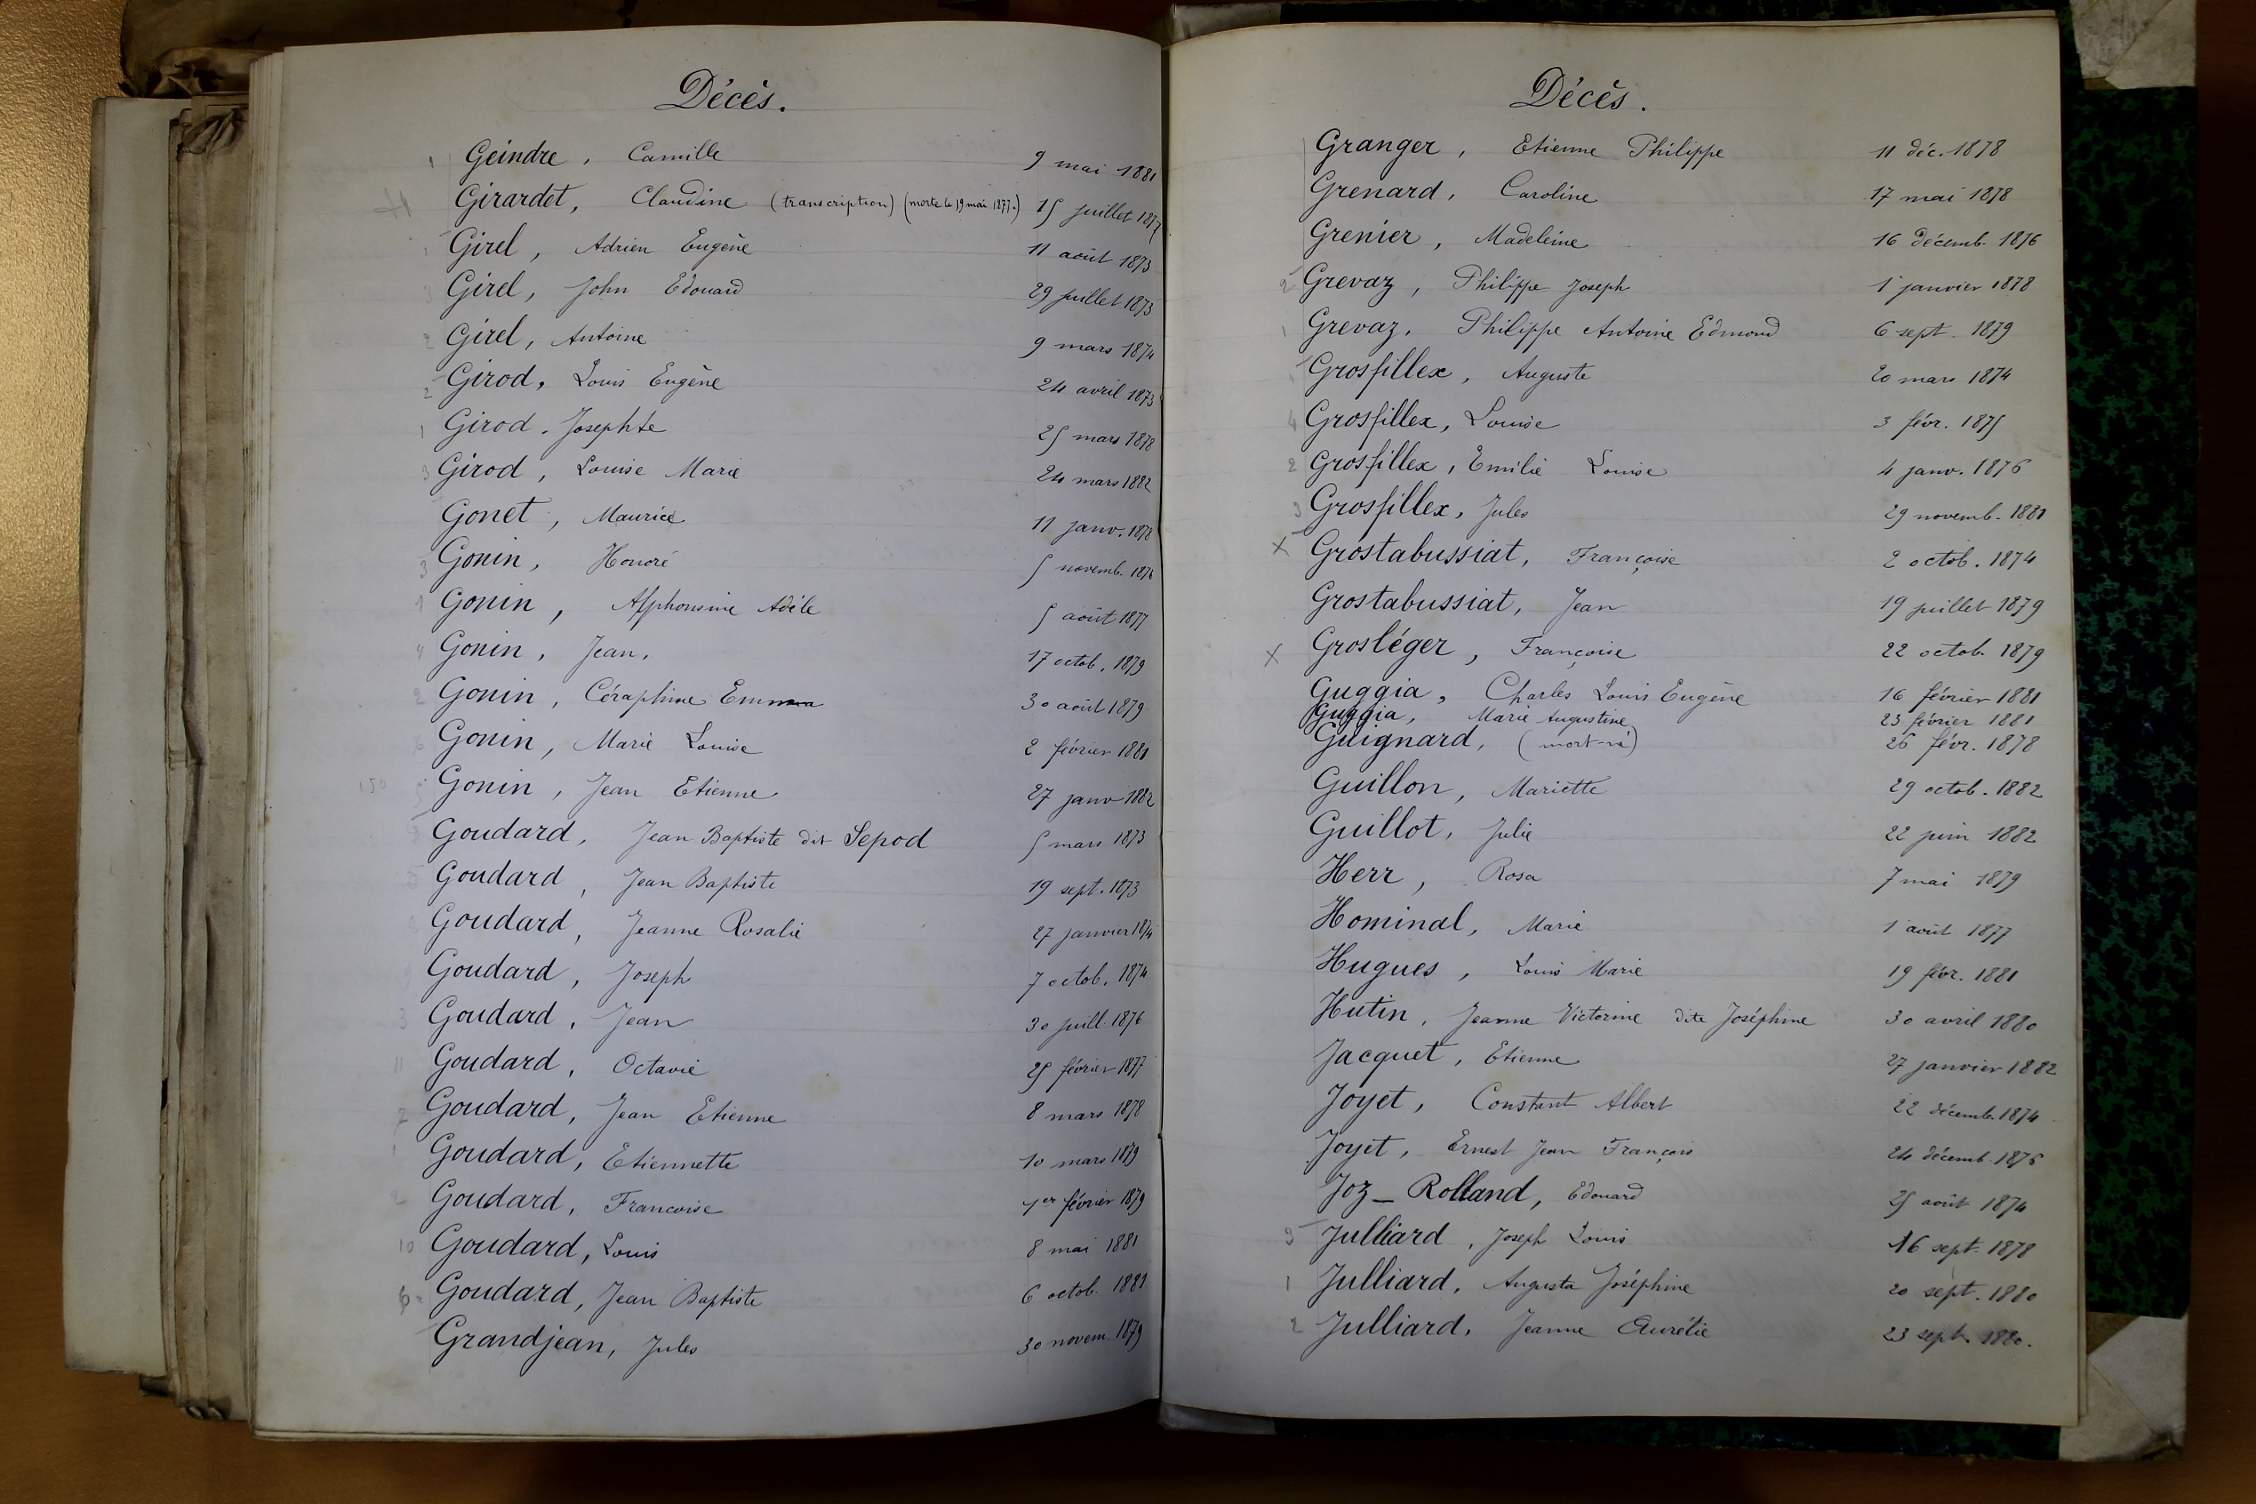 Décès.
1 Geindre, Camille 9 mai 1881
Girardet, Claudine (transcription) (morte le 19 mai 1877.) 15 juillet 1877
Girel, Adrien Eugène 11 août 1873
3 Girel, John Edouard 29 juillet 1873
2 Girel, Antoine 9 mars 1874
2 Girod, Louis Eugène 24 avril 1873
1 Girod, Josephte 25 mars 1878
3 Girod, Louise Marie 24 mars 1882
Gonet, Maurice 11 janv. 1878
3 Gonin, Honoré 5 novemb. 1876
1 Gonin, Alphonsine Adèle 5 août 1877
4 Gonin, Jean, 17 octob. 1879
2 Gonin, Céraphine Emma 30 août 1879
6 Gonin, Marie Louise 2 février 1881
150 5 Gonin, Jean Etienne 27 janv 1882
Goudard, Jean Baptiste dit Sepod 5 mars 1873
5 Goudard, Jean Baptiste 19 sept. 1873
Goudard, Jeanne Rosalie 27 janvier 1874
Goudard, Joseph 7 octob. 1874
3 Goudard, Jean 30 juill. 1876
11 Goudard, Octavie 25 février 1877
7 Goudard, Jean Etienne 8 mars 1878
1 Goudard, Etiennette 10 mars 1879
2 Goudard, Francoise 1er février 1879
10 Goudard, Louis 8 mai 1881
6 Goudard, Jean Baptiste 6 octob. 1881
Grandjean, Jules 30 novem. 1879
Décès.
Granger, Etienne Philippe 11 déc. 1878
Grenard, Caroline 17 mai 1878
Grenier, Madeleine 16 décemb. 1876
2 Grevaz, Philippe Joseph 1 janvier 1878
1 Grevaz, Philippe Antoine Edmond 6 sept. 1879
1 Grosfillex, Auguste 20 mars 1874
4 Grosfillex, Louise 3 févr. 1875
2 Grosfillex, Emilie Louise 4 janv. 1876
3 Grosfillex, Jules 29 novemb. 1881
X Grostabussiat, Françoise 2 octob. 1874
Grostabussiat, Jean 19 juillet 1879
X Grosléger, Françoise 22 octob. 1879
Guggia, Charles Louis Eugène 16 février 1881
Guggia, Marie Augustine 23 février 1881
Guignard, (mort-né) 26 févr. 1878
Guillon, Mariette 29 octob. 1882
Guillot, Julie 22 juin 1882
Herr, Rosa 7 mai 1879
Hominal, Marie 1 août 1877
Hugues, Louis Marie 19 févr. 1881
Hutin, Jeanne Victorine dite Joséphine 30 avril 1880
Jacquet, Etienne 27 janvier 1882
Joyet, Constant Albert 22 décemb. 1874
Joyet, Ernest Jean François 24 décemb. 1876
Joz-Rolland, Edouard 25 août 1874
3 Julliard, Joseph Louis 16 sept. 1878
1 Julliard, Augusta Joséphine 20 sept. 1880
2 Julliard, Jeanne Aurélie 23 sept. 1880.